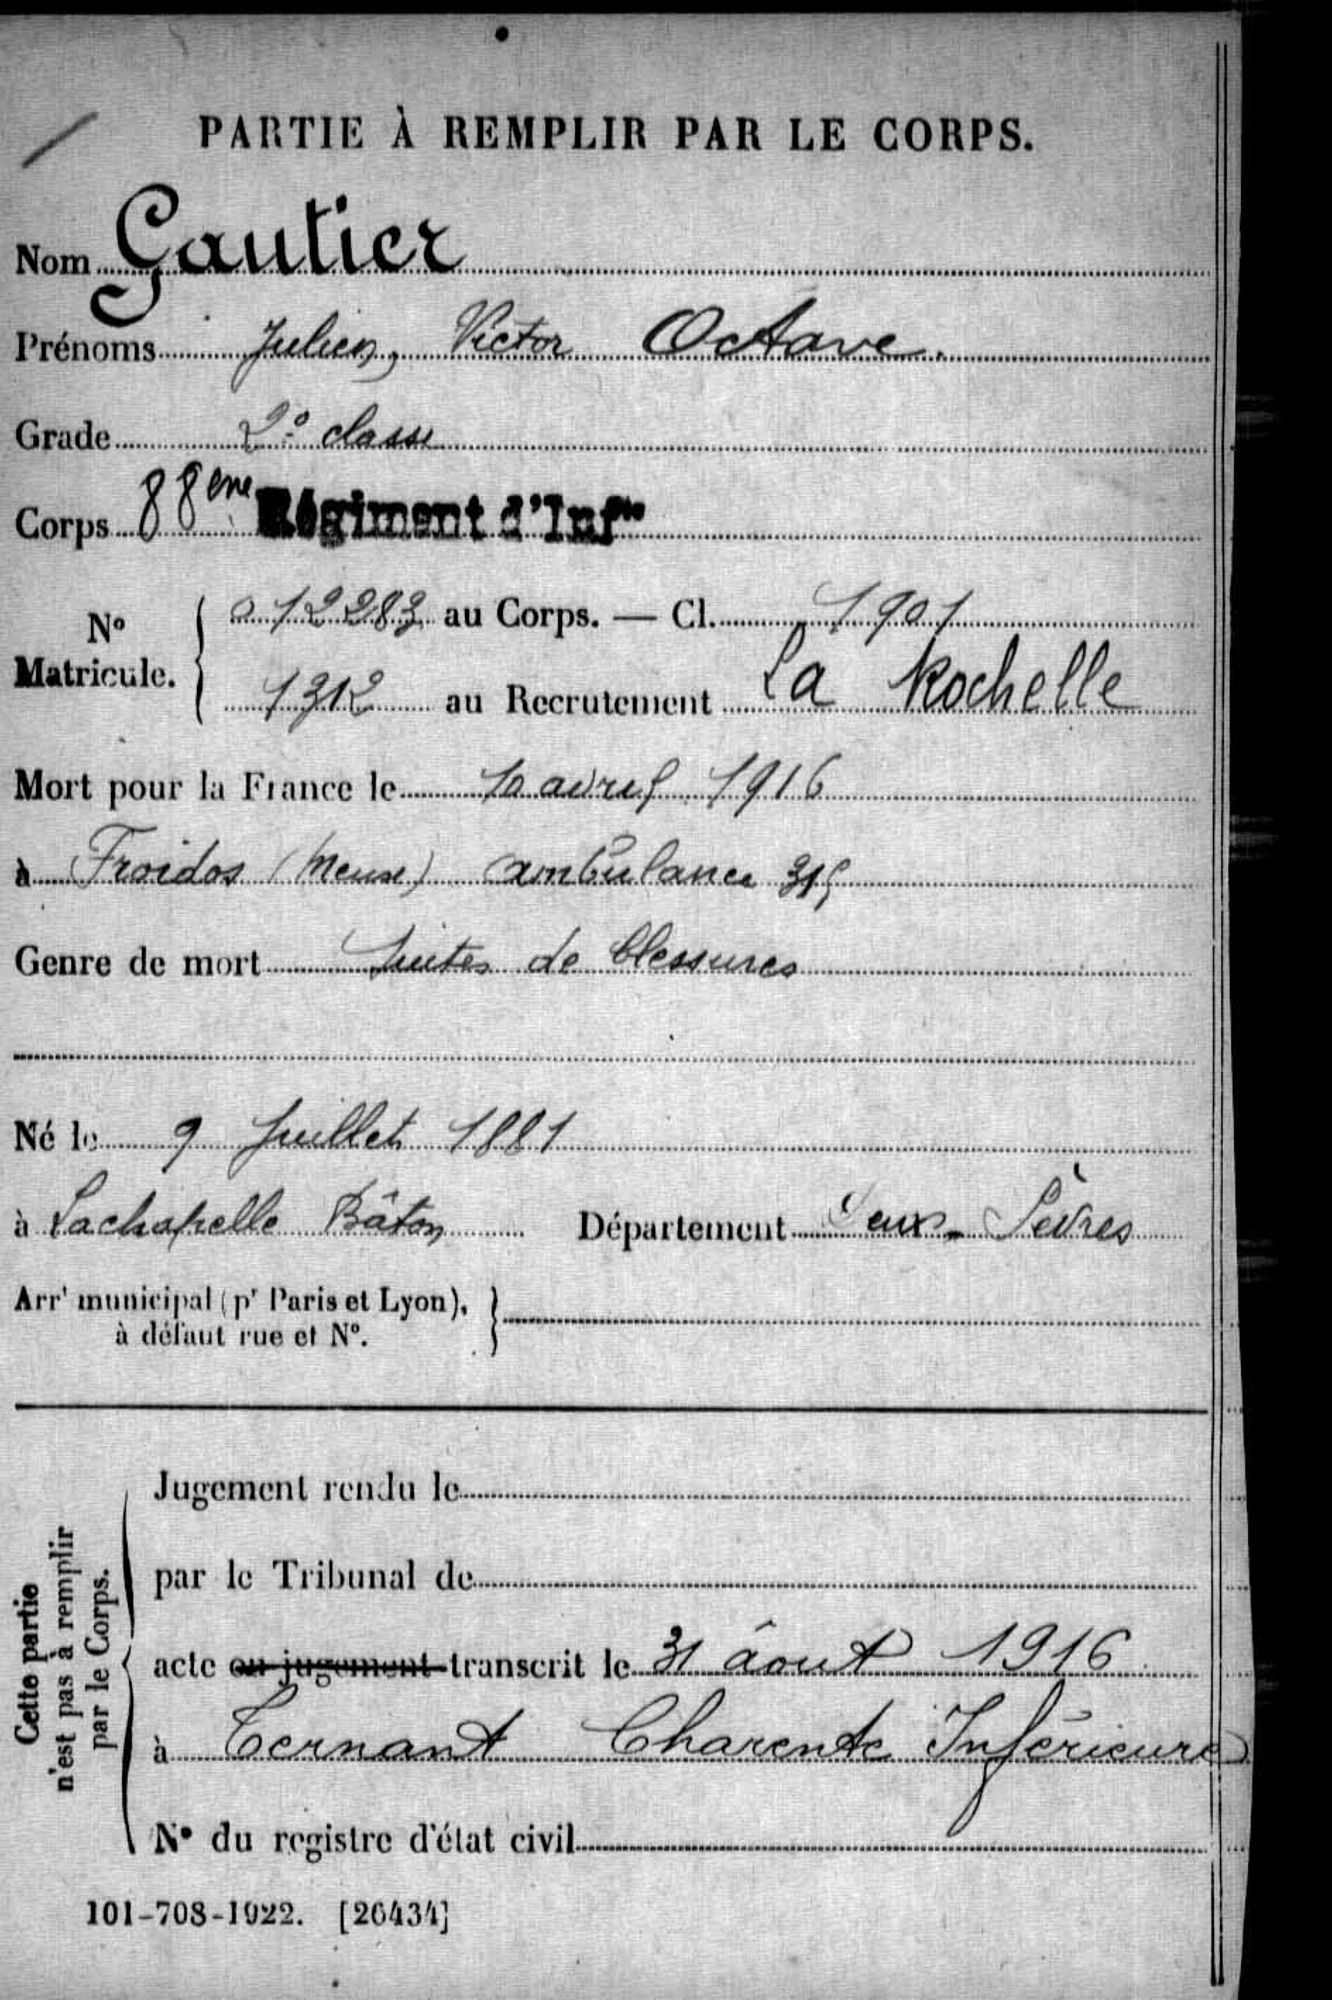 PARTIE À REMPLIR PAR LE CORPS.
Nom Gautier
Prénoms Julien, Victor Octave.
Grade 2e classe
Corps 88ème Régiment d'Infie
No Matricule. 012283 au Corps. — Cl. 1901
1312 au Recrutement La Rochelle
Mort pour la France le 10 avril 1916
à Froidos (Meuse) ambulance
Genre de mort Suites de blessures
Né le 9 Juillet 1881
à Lachapelle Bâton Département Deux-Sèvres
Arrt municipal (pr Paris et Lyon), à défaut rue et No.
Cette partie n'est pas à remplir par le Corps.
Jugement rendu le
par le Tribunal de
acte ou jugement transcrit le 31 âout 1916
à Ternant Charente Inférieure
No du registre d'état civil
101-708-1922. [26434]